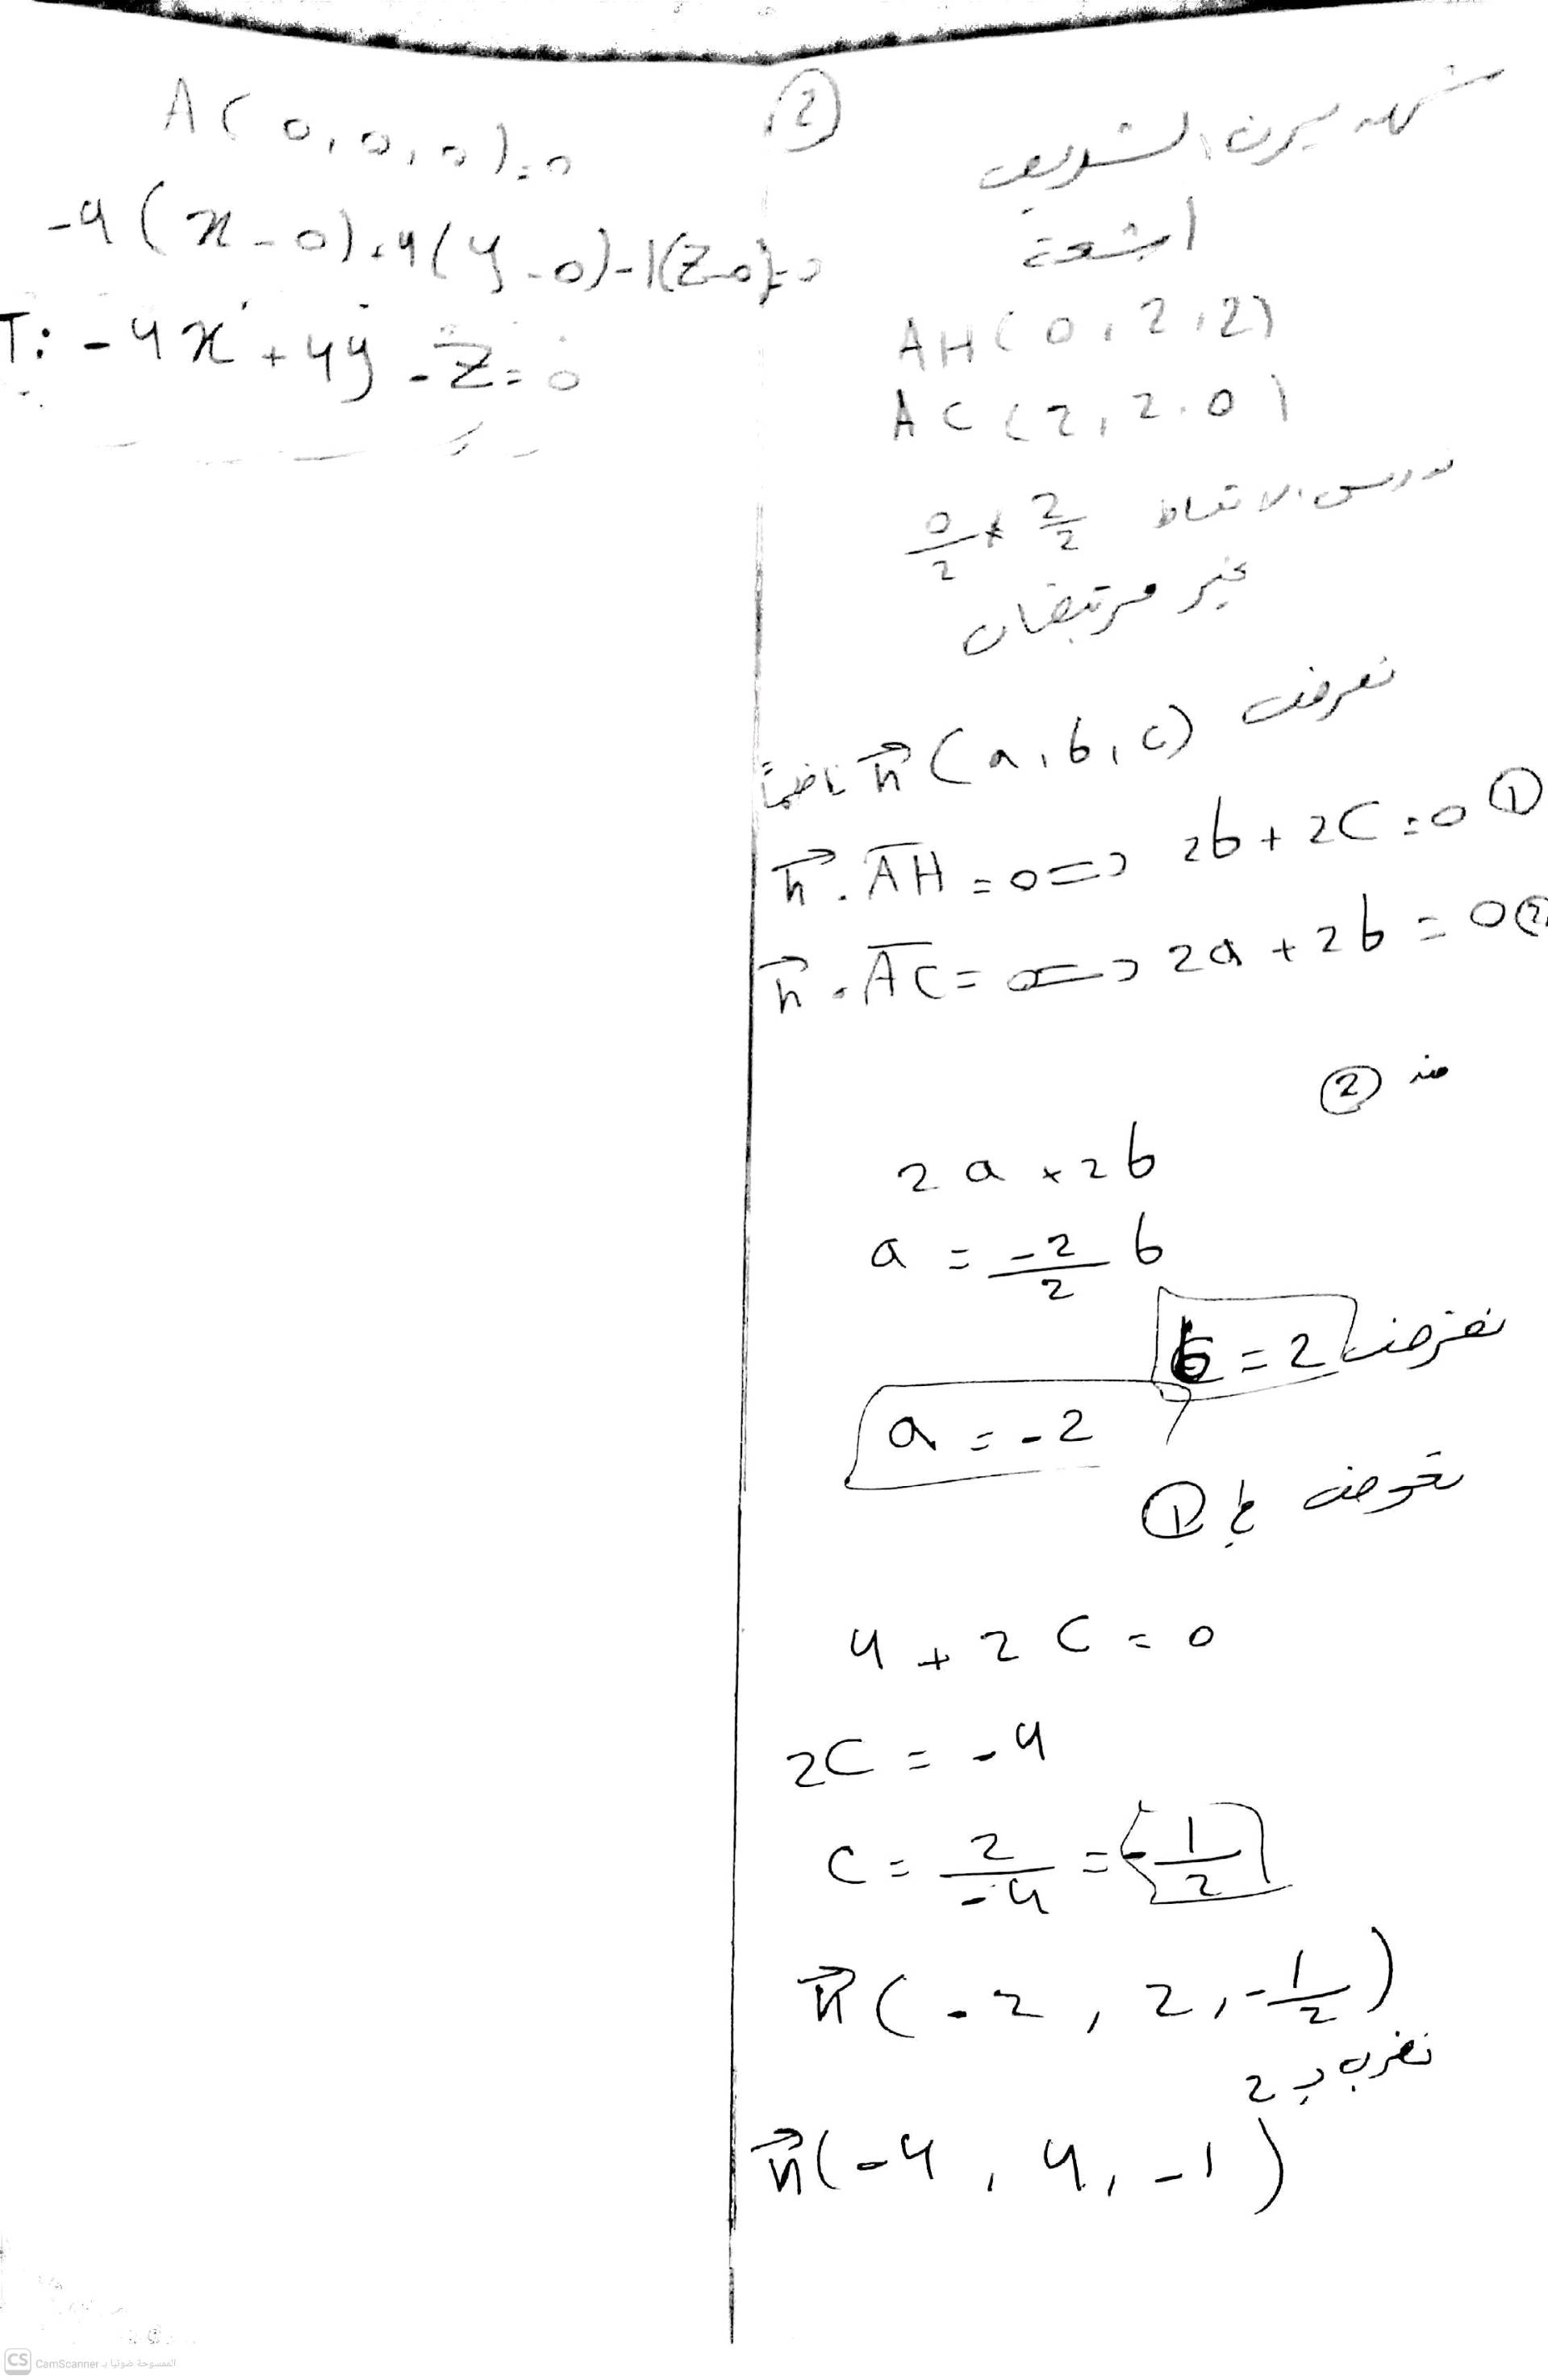 ②
أشعة
AH(0, 2, 2)
AC(2, 2, 0)
0/2 ≠ 2/2
غير مرتبطان
نفرض n⃗(a, b, c) ناظماً
n⃗ . AH = 0 => 2b + 2C = 0 ①
n⃗ . AC = 0 => 2a + 2b = 0 ②
من ②
2a + 2b
a = -2/2 b
نفرض b = 2
a = -2
نعوض في ①
4 + 2C = 0
2C = -4
C = 2/-4 = -1/2
n⃗(-2, 2, -1/2)
نضرب بـ 2
n⃗(-4, 4, -1)
A(0, 0, 0) = 0
-4(x-0)+4(y-0)-1(z-0)=0
T: -4x + 4y - z = 0
CS CamScanner الممسوحة ضوئيا بـ